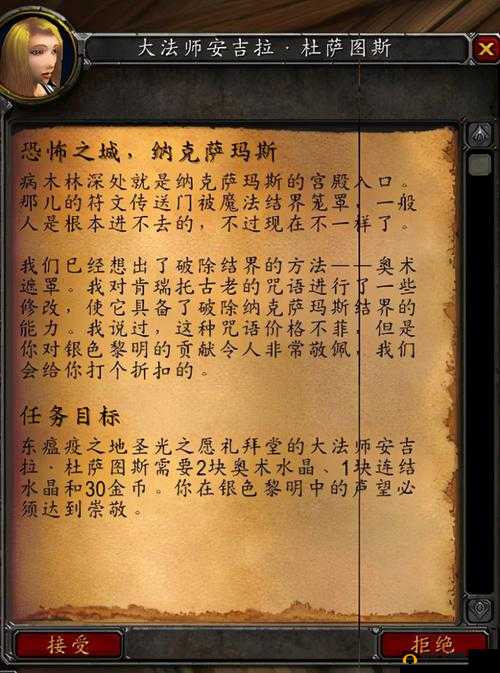 大法师安吉拉·杜萨图斯
恐怖之城，纳克萨玛斯
病木林深处就是纳克萨玛斯的宫殿入口。
那儿的符文传送门被魔法结界笼罩，一般
人是根本进不去的，不过现在不一样了。
我们已经想出了破除结界的方法——奥术
遮罩。我对肯瑞托古老的咒语进行了一些
修改，使它具备了破除纳克萨玛斯结界的
能力。我说过，这种咒语价格不菲，但是
你对银色黎明的贡献令人非常敬佩，我们
会给你打个折扣的。
任务目标
东瘟疫之地圣光之愿礼拜堂的大法师安吉
拉·杜萨图斯需要2块奥术水晶、1块连结
水晶和30金币。你在银色黎明中的声望必
须达到崇敬。
接受
拒绝